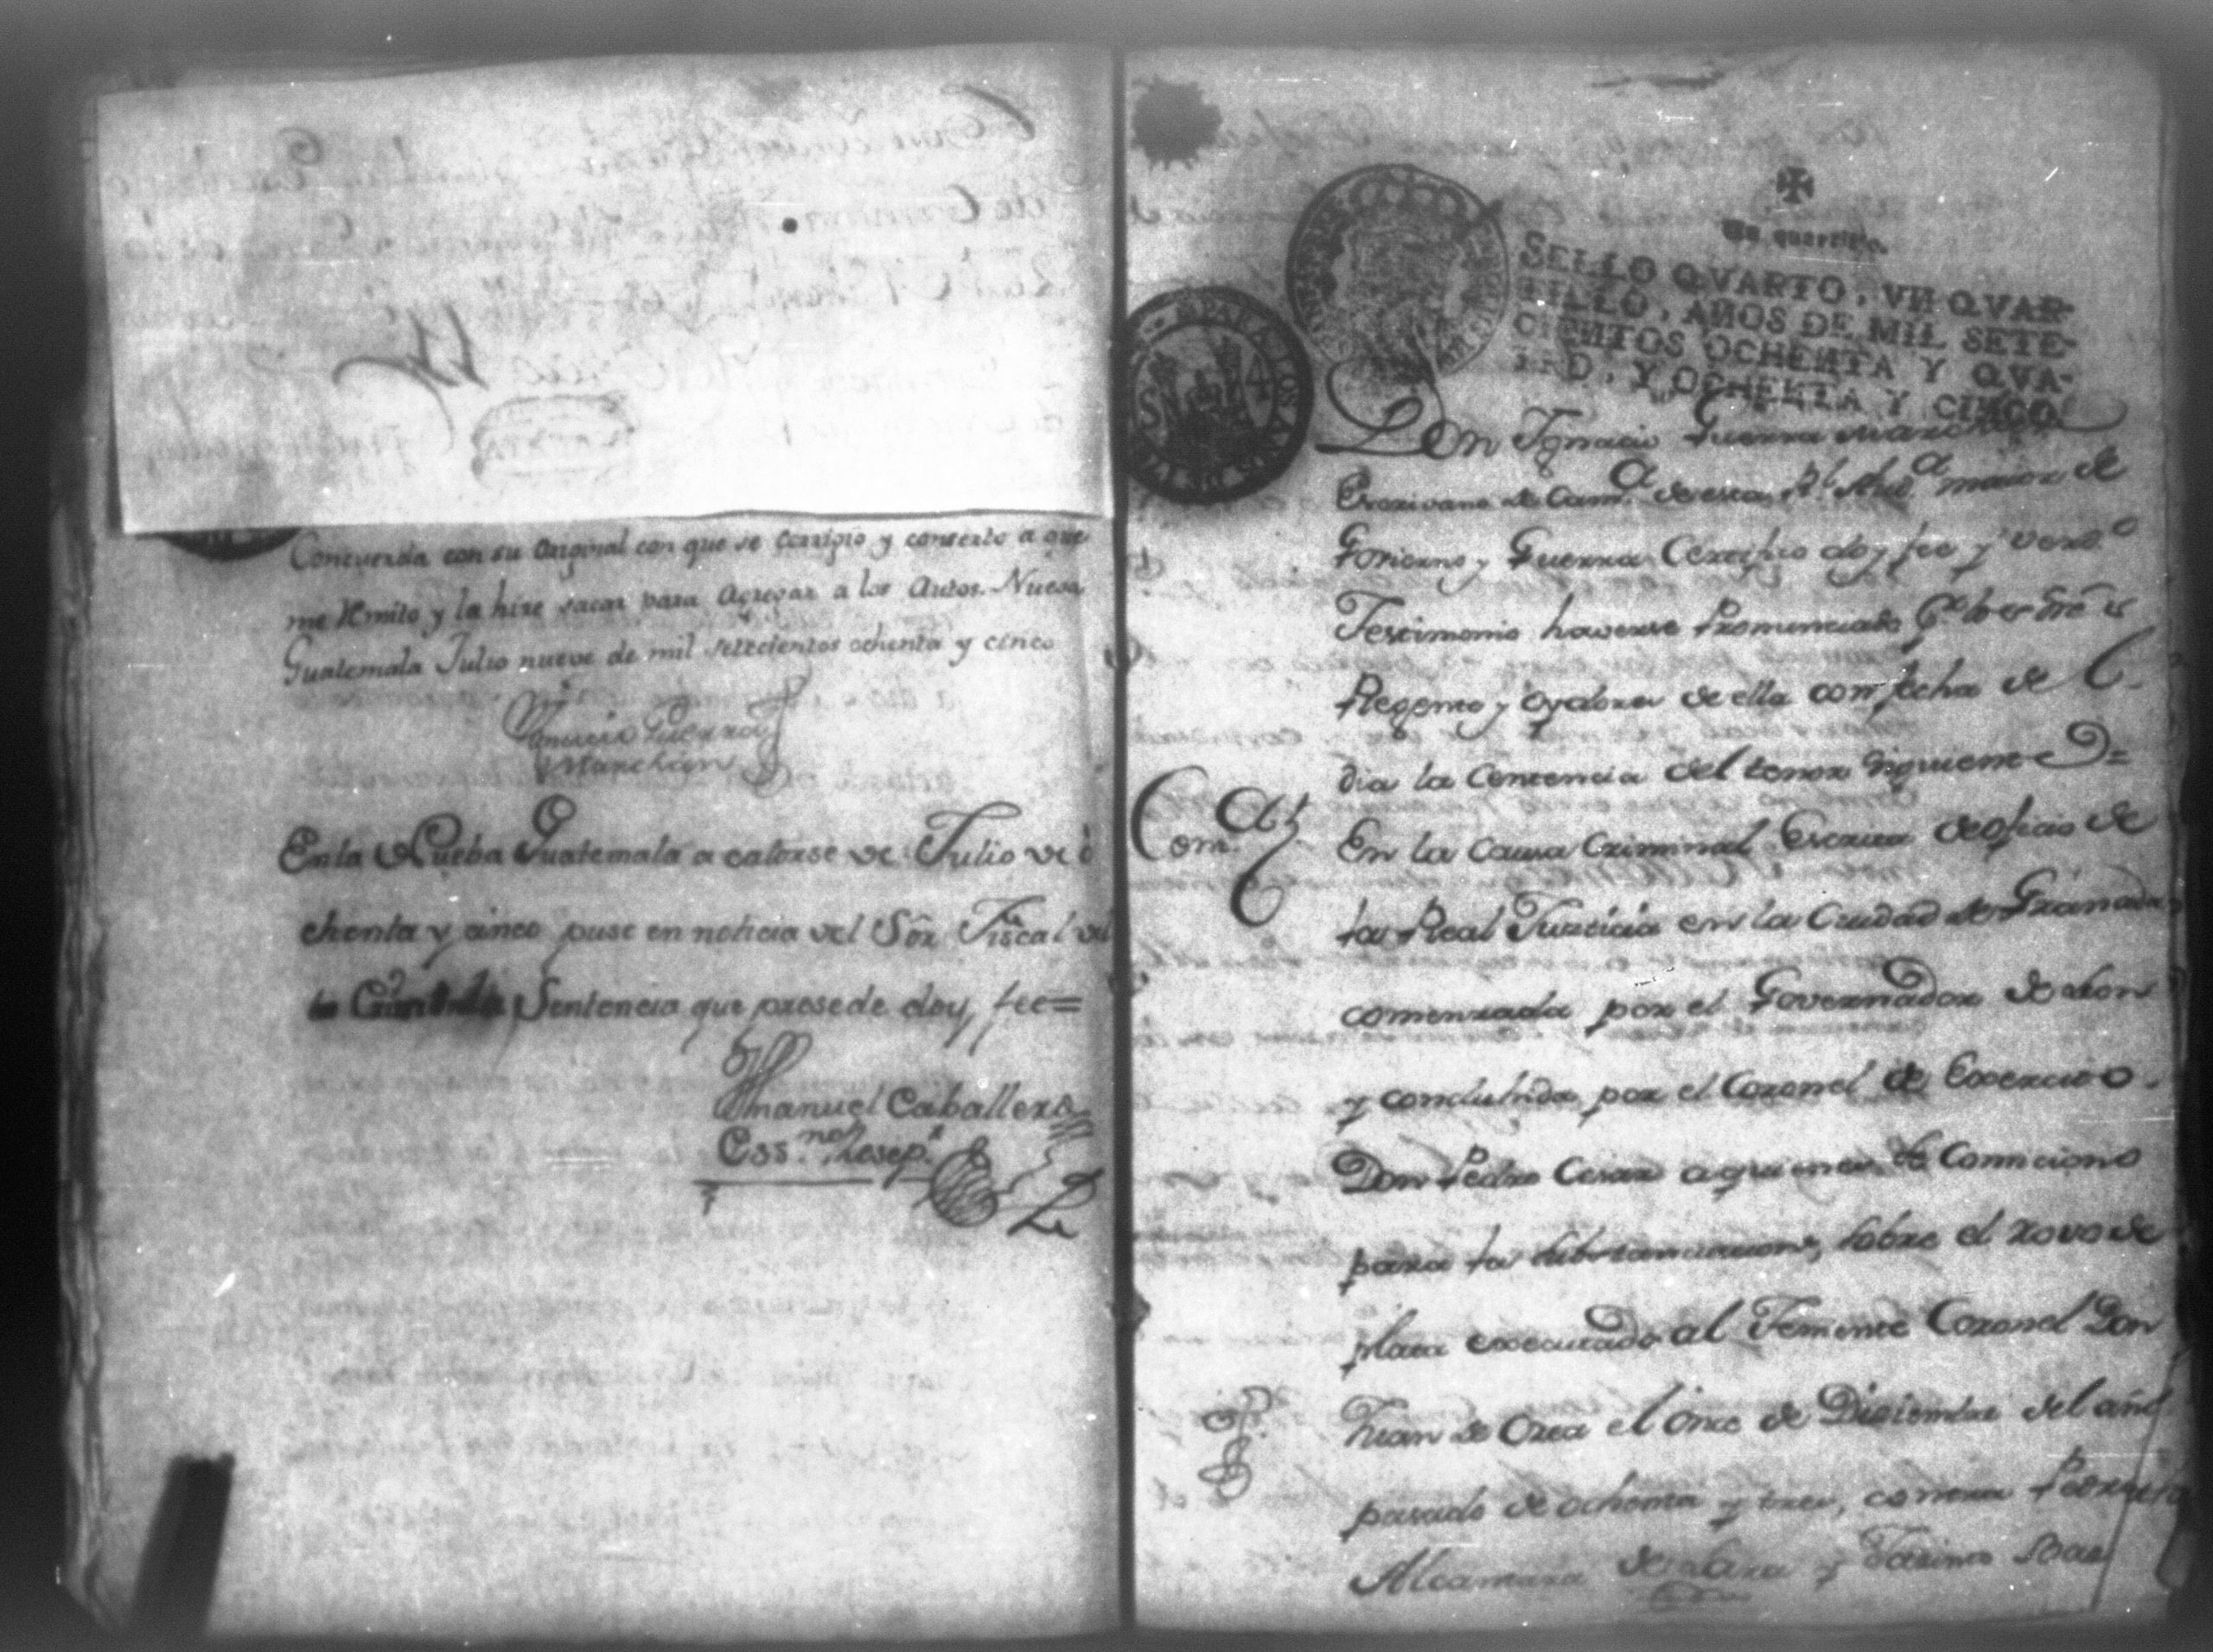 Concuerda con su original con que se corrigio y conserto a que
me remito y la hise sacar para agregar a los autos. Nueva
Guatemala Julio nueve de mil setecientos ochenta y cinco
Ignacio Guerra
Marchan
En la Nueba Guatemala a catorse de Julio de o
chenta y cinco puse en noticia del Sõr Fiscal del
Sentencia que presede doy fee=
Manuel Caballero
Ess.no Resep.r
Un quartillo.
SELLO QVARTO, VN QVAR-
TILLO, AÑOS DE MIL SETE-
CIENTOS OCHENTA Y QVA-
TRO, Y OCHENTA Y CINCO.
Don Ignacio Guerra Marchan
Escrivano de Cam.a de esta R.l Aud.a maior de
Govierno y Guerra Certifico doy fee y verd.o
Testimonio haverse Pronunciado
Regente y oydores de ella con fecha de
dia la Sentencia del tenor siguiente=
En la Causa Criminal Escrita de oficio de
la Real Justicia en la Ciudad de Granada
comenzada por el Governador de Leon
y concluhida por el Coronel de Exercito
Don Pedro Cesar a quien se Comiciono
para la substanciacion, sobre el rovo de
plata executado al Teniente Coronel Don
Juan de Orea el once de Diciembre del año
pasado de ochenta y tres, contra
Alcantara de Lara y